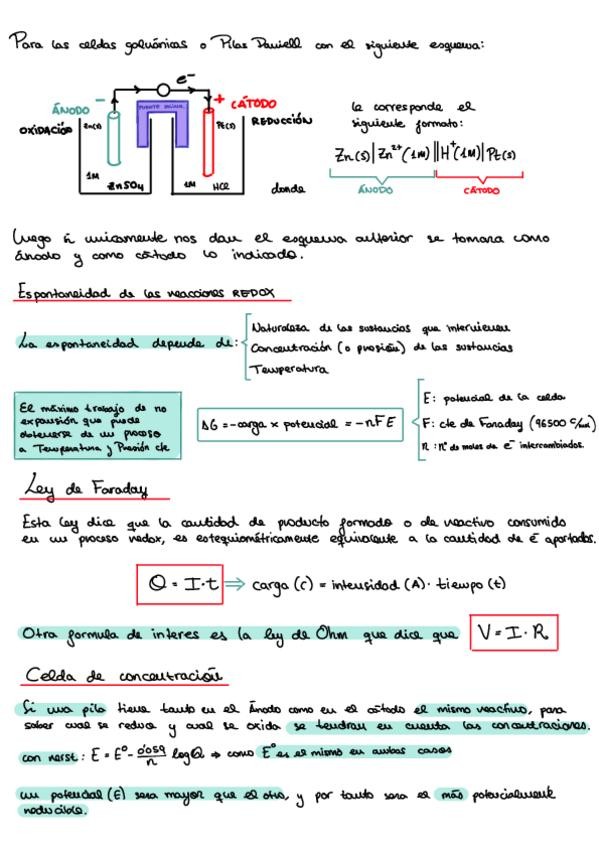 Para las celdas galvánicas o Pilas Daniell con el siguiente esquema:
e-
ÁNODO - + CÁTODO
OXIDACIÓN Zn(s) PUENTE SALINO Pt(s) REDUCCIÓN
1M ZnSO4 1M HCl donde
le corresponde el
siguiente formato:
Zn(s)|Zn²⁺(1M)||H⁺(1M)|Pt(s)
ÁNODO CÁTODO
Luego si unicamente nos dan el esquema anterior se tomara como
ánodo y como cátodo lo indicado.
Espontaneidad de las reacciones REDOX
La espontaneidad depende de:
Naturaleza de las sustancias que intervienen
Concentración (o presión) de las sustancias
Temperatura
El máximo trabajo de no
expansión que puede
obtenerse de un proceso
a Temperatura y Presión cte
ΔG = -carga x potencial = -nFE
E: potencial de la celda
F: cte de Faraday (96500 C/mol)
n: nº de moles de e- intercambiados.
Ley de Faraday
Esta ley dice que la cantidad de producto formado o de reactivo consumido
en un proceso redox, es estequiométricamente equivalente a la cantidad de e- aportados.
Q = I·t ⇒ carga (C) = intensidad (A)· tiempo (t)
Otra formula de interes es la ley de Ohm que dice que V = I·R
Celda de concentración
Si una pila tiene tanto en el Ánodo como en el cátodo el mismo reactivo, para
saber cual se reduce y cual se oxida se tendran en cuenta las concentraciones.
con nerst: E = E⁰ - 0'059/n logQ ⇒ como E⁰ es el mismo en ambos casos
un potencial (E) sera mayor que el otro, y por tanto sera el más potencialmente
reducible.